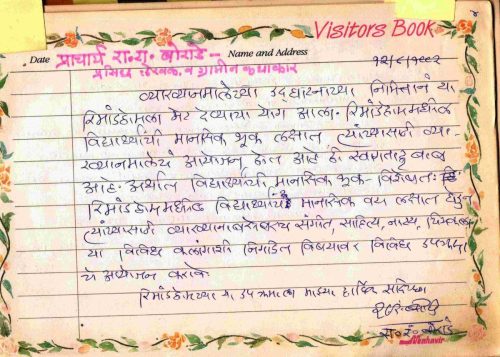 Visitors Book
Date प्राचार्य रा. रं. बोराडे -- Name and Address १२/८/१९९२
प्रसिध्द लेखक व ग्रामीन कथाकार
व्याख्यानमालेच्या उद्घाटनाच्या निमित्तानं या
रिमांडहोमला भेट देण्याचा योग आला. रिमांडहोममधील
विद्यार्थ्यांची मानसिक भूक लक्षात त्यांच्यासाठी व्या-
ख्यानमालेचं आयोजन होत आहे ही स्वागतार्ह बाब
आहे. अर्थात विद्यार्थ्यांची मानसिक भूक- विशेषतः
रिमांडहोममधील विद्यार्थ्यांचं मानसिक वय लक्षात घेऊन
त्यांच्यासाठी व्याख्यानाबरोबरच संगीत, साहित्य, नाट्य, चित्रकला
या विविध कलांशी निगडित विषयावर विविध उपक्रमा
चे आयोजन करावे
रिमांडहोमच्या या उपक्रमाला माझ्या हार्दिक सदिच्छा
रा. रं. बोराडे
Mahavir